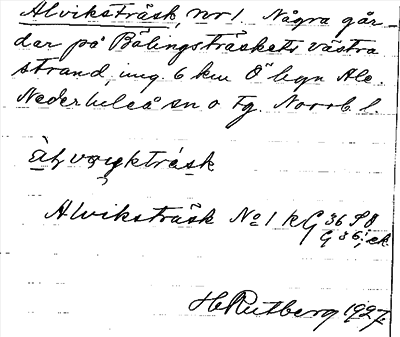 Alviksträsk, nr 1. Några går-
dar på Bälingsträskets västra
strand, ung. 6 km Ö byn Ale.
Nederluleå sn o tg. Norrb. l.
Alviksträsk No 1 kG 36 SO
G 36; ek.
H Rutberg 1927.